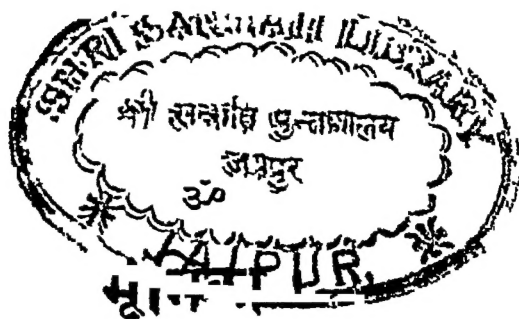 SHRI SANMATI LIBRARY
श्री सन्मति पुस्तकालय
जयपुर
ॐ
JAIPUR.